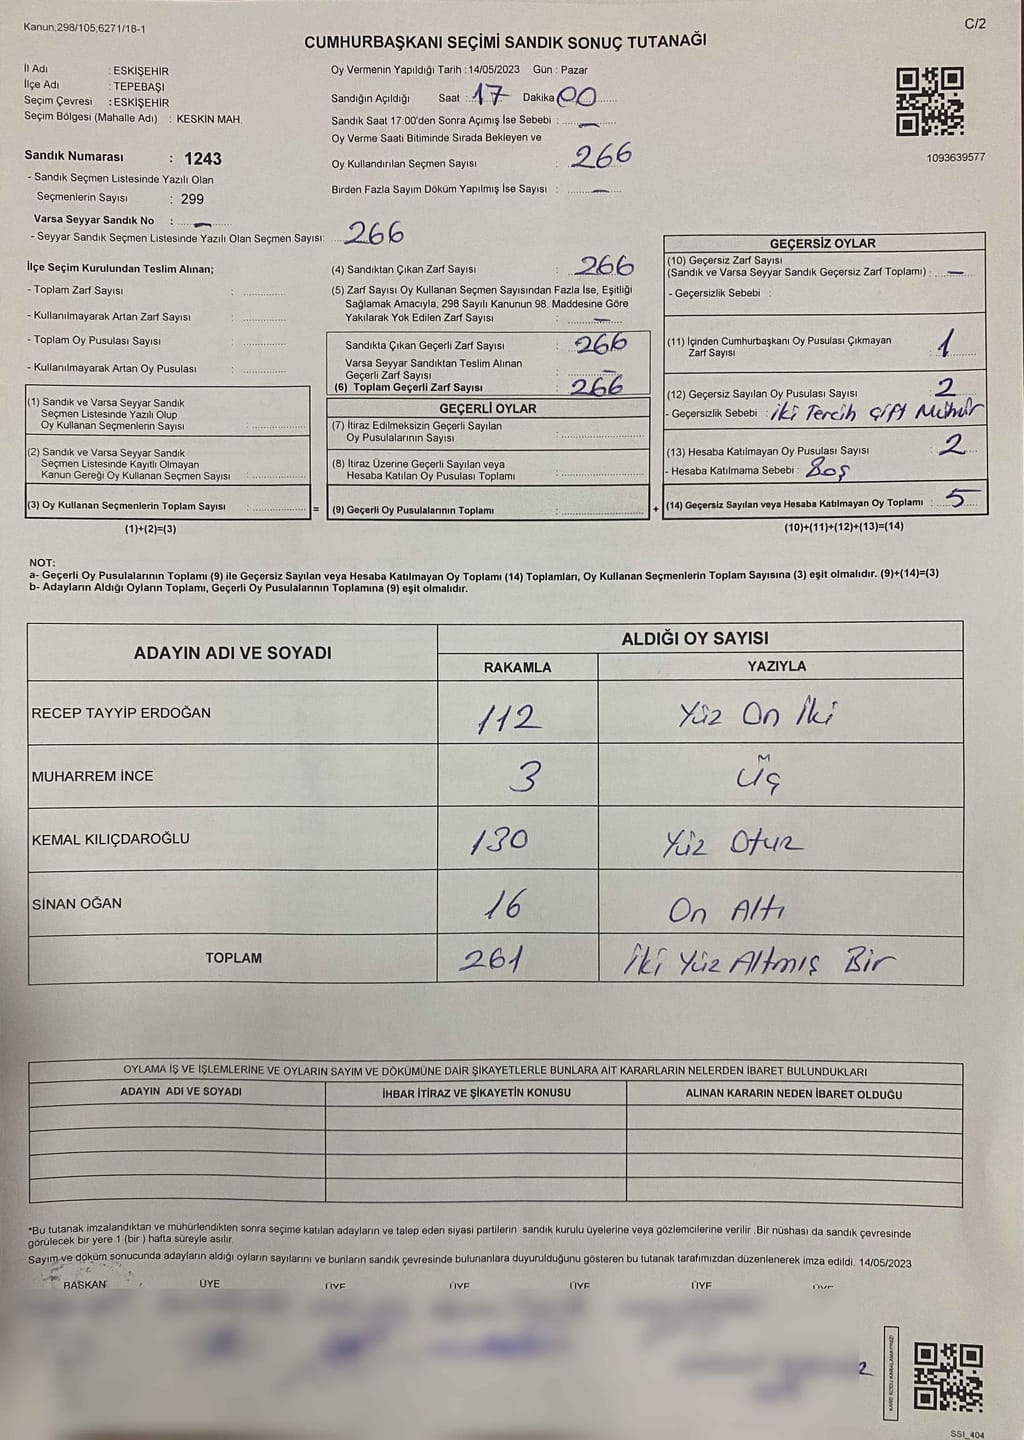 Kanun;298/105,6271/18-1
C/2
CUMHURBAŞKANI SEÇİMİ SANDIK SONUÇ TUTANAĞI
İl Adı : ESKİŞEHİR
İlçe Adı : TEPEBAŞI
Seçim Çevresi : ESKİŞEHİR
Seçim Bölgesi (Mahalle Adı) : KESKİN MAH.
Sandık Numarası : 1243
- Sandık Seçmen Listesinde Yazılı Olan
Seçmenlerin Sayısı : 299
Varsa Seyyar Sandık No : —
- Seyyar Sandık Seçmen Listesinde Yazılı Olan Seçmen Sayısı: 266
Oy Vermenin Yapıldığı Tarih :14/05/2023 Gün : Pazar
Sandığın Açıldığı Saat : 17 Dakika 00
Sandık Saat 17:00'den Sonra Açımış İse Sebebi : —
Oy Verme Saati Bitiminde Sırada Bekleyen ve
Oy Kullandırılan Seçmen Sayısı : 266
Birden Fazla Sayım Döküm Yapılmış İse Sayısı : —
1093639577
İlçe Seçim Kurulundan Teslim Alınan;
- Toplam Zarf Sayısı :
- Kullanılmayarak Artan Zarf Sayısı :
- Toplam Oy Pusulası Sayısı :
- Kullanılmayarak Artan Oy Pusulası :
(1) Sandık ve Varsa Seyyar Sandık
Seçmen Listesinde Yazılı Olup
Oy Kullanan Seçmenlerin Sayısı :
(2) Sandık ve Varsa Seyyar Sandık
Seçmen Listesinde Kayıtlı Olmayan
Kanun Gereği Oy Kullanan Seçmen Sayısı :
(3) Oy Kullanan Seçmenlerin Toplam Sayısı : =
(1)+(2)=(3)
(4) Sandıktan Çıkan Zarf Sayısı : 266
(5) Zarf Sayısı Oy Kullanan Seçmen Sayısından Fazla İse, Eşitliği
Sağlamak Amacıyla, 298 Sayılı Kanunun 98. Maddesine Göre
Yakılarak Yok Edilen Zarf Sayısı : —
Sandıkta Çıkan Geçerli Zarf Sayısı : 266
Varsa Seyyar Sandıktan Teslim Alınan
Geçerli Zarf Sayısı : —
(6) Toplam Geçerli Zarf Sayısı : 266
GEÇERLİ OYLAR
(7) İtiraz Edilmeksizin Geçerli Sayılan
Oy Pusulalarının Sayısı :
(8) İtiraz Üzerine Geçerli Sayılan veya
Hesaba Katılan Oy Pusulası Toplamı :
(9) Geçerli Oy Pusulalarının Toplamı : +
GEÇERSİZ OYLAR
(10) Geçersiz Zarf Sayısı
(Sandık ve Varsa Seyyar Sandık Geçersiz Zarf Toplamı) : —
- Geçersizlik Sebebi :
(11) İçinden Cumhurbaşkanı Oy Pusulası Çıkmayan
Zarf Sayısı : 1
(12) Geçersiz Sayılan Oy Pusulası Sayısı : 2
- Geçersizlik Sebebi : iki Tercih Çift Mühür
(13) Hesaba Katılmayan Oy Pusulası Sayısı : 2
- Hesaba Katılmama Sebebi : Boş
(14) Geçersiz Sayılan veya Hesaba Katılmayan Oy Toplamı : 5
(10)+(11)+(12)+(13)=(14)
NOT:
a- Geçerli Oy Pusulalarının Toplamı (9) ile Geçersiz Sayılan veya Hesaba Katılmayan Oy Toplamı (14) Toplamları, Oy Kullanan Seçmenlerin Toplam Sayısına (3) eşit olmalıdır. (9)+(14)=(3)
b- Adayların Aldığı Oyların Toplamı, Geçerli Oy Pusulalarının Toplamına (9) eşit olmalıdır.
ADAYIN ADI VE SOYADI
ALDIĞI OY SAYISI
RAKAMLA YAZIYLA
RECEP TAYYİP ERDOĞAN 112 Yüz On İki
MUHARREM İNCE 3 Üç
KEMAL KILIÇDAROĞLU 130 Yüz Otuz
SİNAN OĞAN 16 On Altı
TOPLAM 261 İki Yüz Altmış Bir
OYLAMA İŞ VE İŞLEMLERİNE VE OYLARIN SAYIM VE DÖKÜMÜNE DAİR ŞİKAYETLERLE BUNLARA AİT KARARLARIN NELERDEN İBARET BULUNDUKLARI
ADAYIN ADI VE SOYADI İHBAR İTİRAZ VE ŞİKAYETİN KONUSU ALINAN KARARIN NEDEN İBARET OLDUĞU
*Bu tutanak imzalandıktan ve mühürlendikten sonra seçime katılan adayların ve talep eden siyasi partilerin sandık kurulu üyelerine veya gözlemcilerine verilir .Bir nüshası da sandık çevresinde
görülecek bir yere 1 (bir ) hafta süreyle asılır.
Sayım ve döküm sonucunda adayların aldığı oyların sayılarını ve bunların sandık çevresinde bulunanlara duyurulduğunu gösteren bu tutanak tarafımızdan düzenlenerek imza edildi. 14/05/2023
BAŞKAN ÜYE ÜYE ÜYE ÜYE ÜYE ÜYE
2
KARE KODU KARALAMAYINIZ!
SSI_404